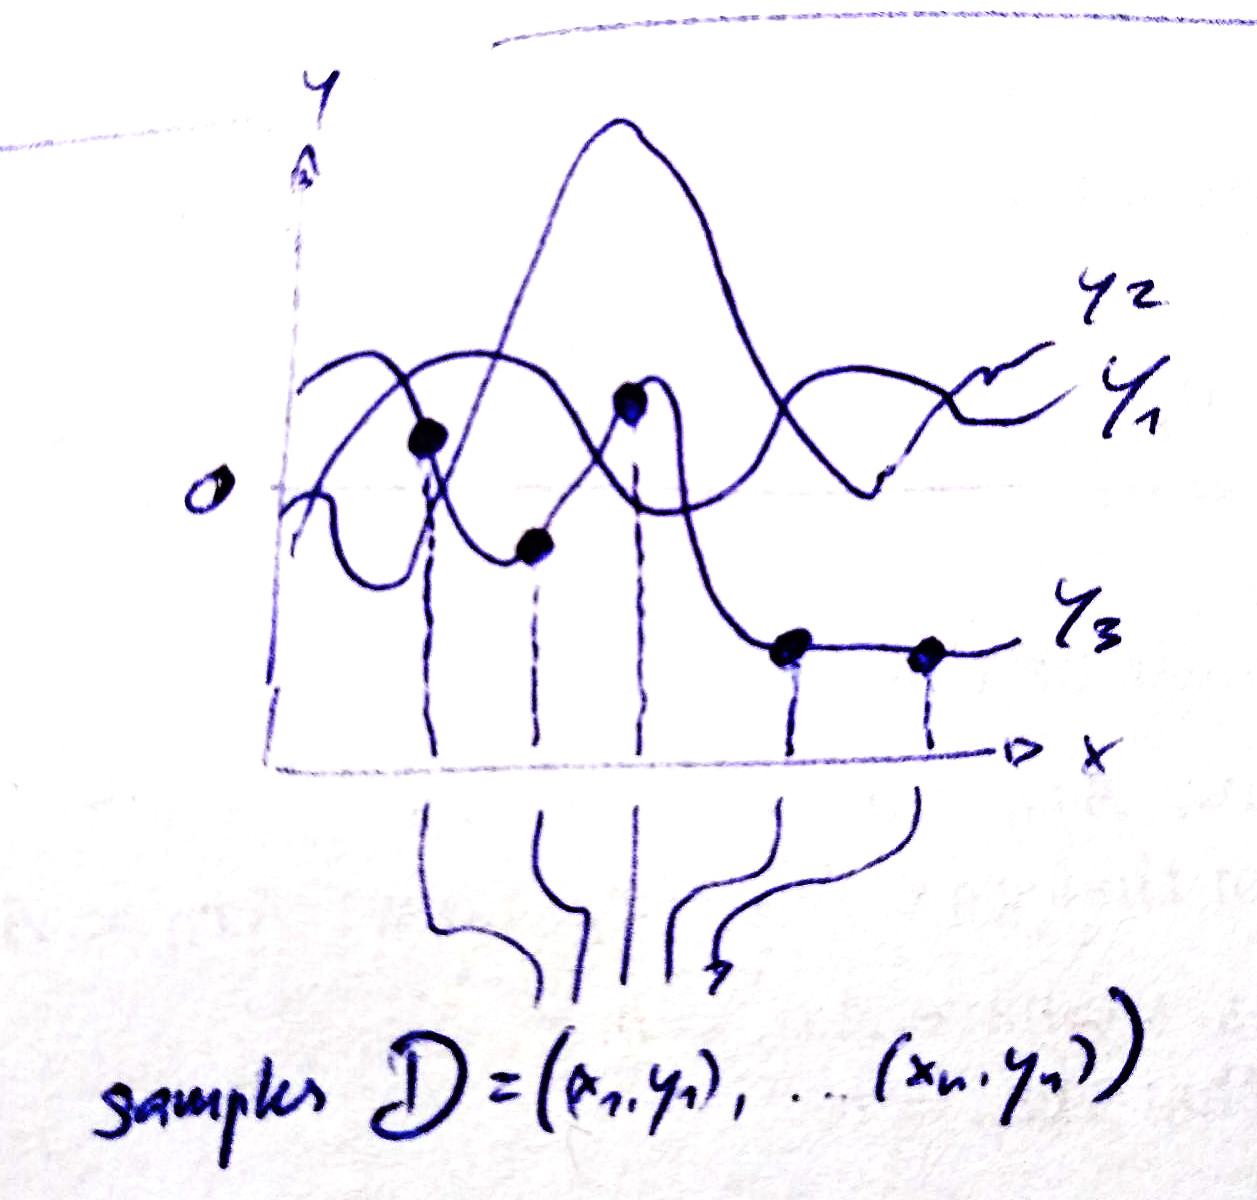 Y
Y2
Y1
O
Y3
X
samples D = ((x1, y1), ... (xn, yn))